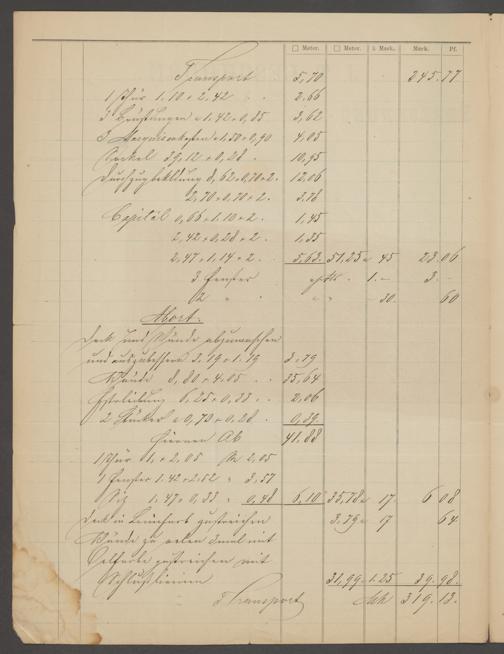 □ Meter. □ Meter. à Mark. Mark. Pf.
Transport 5,70 245.77
1 Thür 1.10 × 2.42 2.66
3 Brüstungen a 1.42 × 0,85 3,62
3 a 1,50 × 0,90 4,05
Sockel 39,12 × 0,28 10,95
8,62 × 0,70 × 2. 12,06
2,70 × 0,70 × 2. 3.78
Capitäl 0,66 × 1.10 × 2. 1,45
2,42 × 0,28 × 2. 1,35
2,47 × 1,14 × 2. 5,63. 51,25 a 45 23.06
3 Fenster 1.– 3.–
2 " " " 30. 60
Abort.
Deck und Wände abzuwaschen
und auszubessern 3.19 × 1.19 3.79
Wände 8,80 × 4.05 35,64
6.25 × 0,33 2,06
2 a 0,70 × 0,28 0,39
Hiervon Ab 41.88
1 Thür 1, × 2.05 2,05
1 Fenster 1.42 × 2.52 " 3,57
Sitz 1.47 × 0,33 " 0,48 6,10 35,78 a 17 6 08
Deck in Leimfarb zustreichen 3.79 a 17 64
Wände zu 3mal mit
Oelfarbe zustreichen mit
Schlußlinien 31,99 a 1.25 39.98.
Transport Mk 319.13.